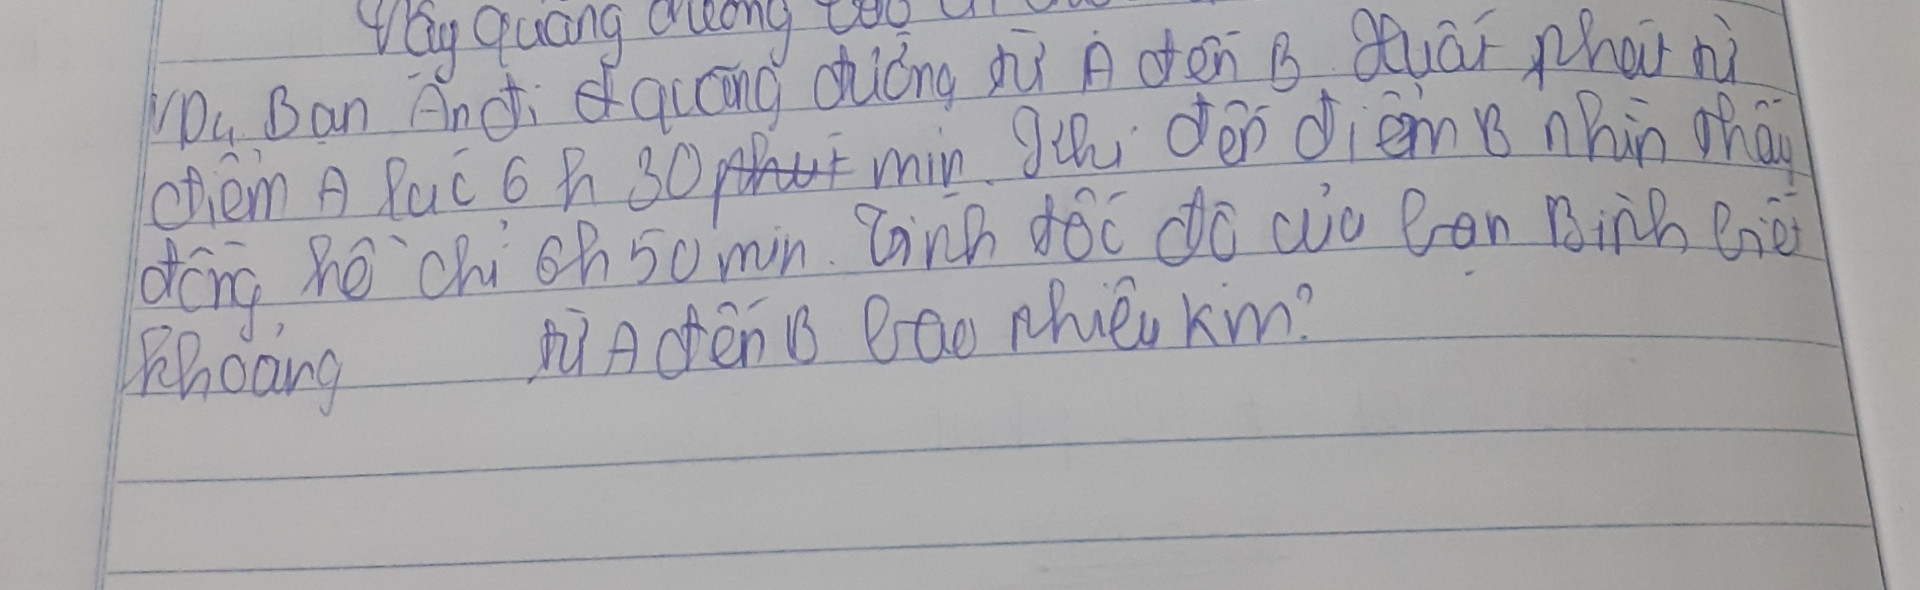 Vậy quãng đường
VD4. Bạn An đi quãng đường từ A đến B. Xuất phát từ
điểm A lúc 6h 30 min. Khi đến điểm B nhìn thấy
đồng hồ chỉ 6h 50 min. Tính tốc độ của bạn Bình biết
khoảng từ A đến B bao nhiêu km?